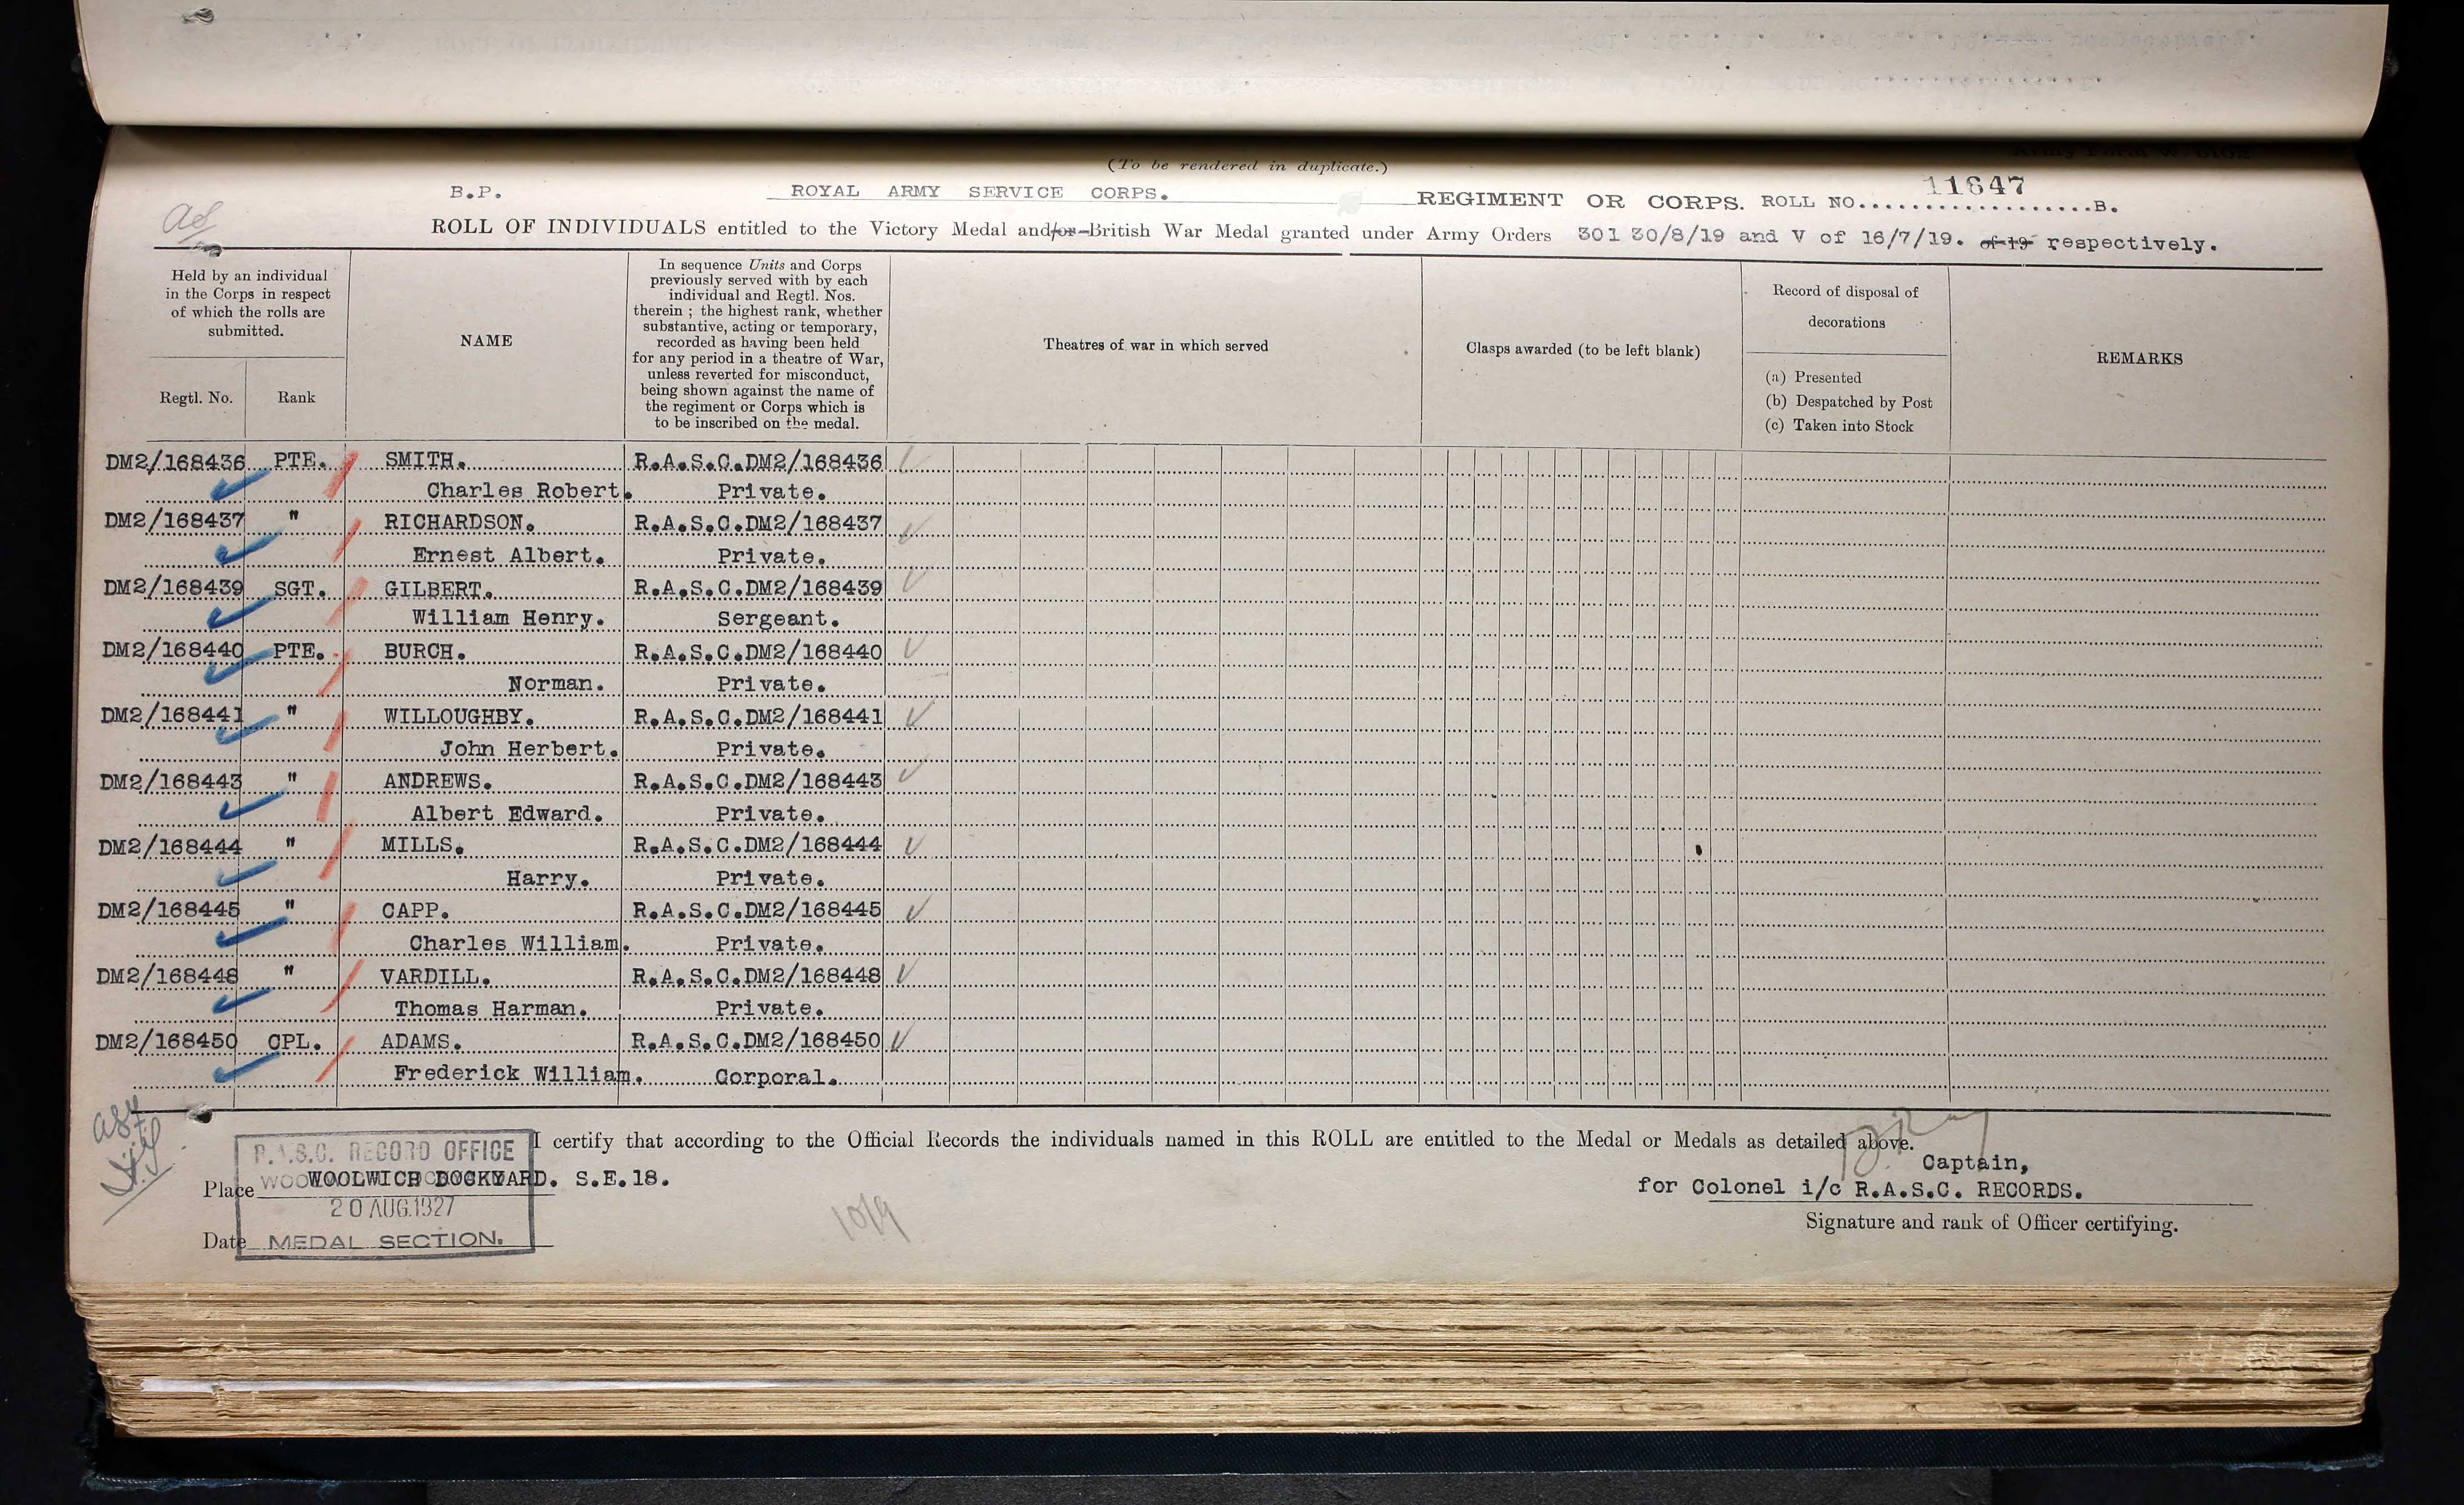 (To be rendered in duplicate.)
B.P. ROYAL ARMY SERVICE CORPS. REGIMENT OR CORPS. ROLL NO. 11647 B.
ROLL OF INDIVIDUALS entitled to the Victory Medal and/or British War Medal granted under Army Orders 301 30/8/19 and V of 16/7/19. of 19 respectively.
Held by an individual
in the Corps in respect
of which the rolls are
submitted.
Regtl. No.
Rank
NAME
In sequence Units and Corps
previously served with by each
individual and Regtl. Nos.
therein ; the highest rank, whether
substantive, acting or temporary,
recorded as having been held
for any period in a theatre of War,
unless reverted for misconduct,
being shown against the name of
the regiment or Corps which is
to be inscribed on the medal.
Theatres of war in which served
Clasps awarded (to be left blank)
Record of disposal of
decorations
(a) Presented
(b) Despatched by Post
(c) Taken into Stock
REMARKS
DM2/168436 PTE. SMITH. R.A.S.C.DM2/168436
Charles Robert. Private.
DM2/168437 " RICHARDSON. R.A.S.C.DM2/168437
Ernest Albert. Private.
DM2/168439 SGT. GILBERT. R.A.S.C.DM2/168439
William Henry. Sergeant.
DM2/168440 PTE. BURCH. R.A.S.C.DM2/168440
Norman. Private.
DM2/168441 " WILLOUGHBY. R.A.S.C.DM2/168441
John Herbert. Private.
DM2/168443 " ANDREWS. R.A.S.C.DM2/168443
Albert Edward. Private.
DM2/168444 " MILLS. R.A.S.C.DM2/168444
Harry. Private.
DM2/168445 " CAPP. R.A.S.C.DM2/168445
Charles William. Private.
DM2/168448 " VARDILL. R.A.S.C.DM2/168448
Thomas Harman. Private.
DM2/168450 CPL. ADAMS. R.A.S.C.DM2/168450
Frederick William. Corporal.
I certify that according to the Official Records the individuals named in this ROLL are entitled to the Medal or Medals as detailed above.
R.A.S.C. RECORD OFFICE
Captain,
Place WOOLWICH DOCKYARD. S.E.18.
for Colonel i/c R.A.S.C. RECORDS.
20 AUG.1927
Signature and rank of Officer certifying.
Date MEDAL SECTION.
10/9